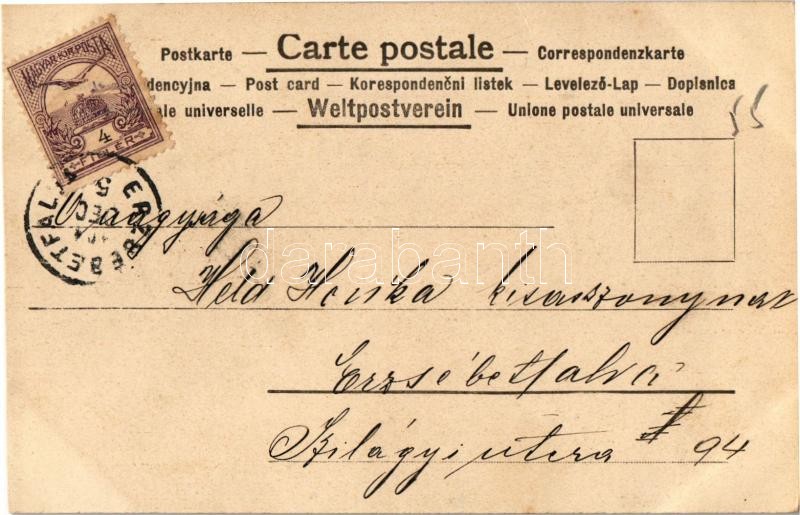 MAGYAR KIR. POSTA
4
FILLÉR
Postkarte — Carte postale — Correspondenzkarte
dencyjna — Post card — Korespondenčni listek — Levelező-Lap — Dopisnica
ale universelle — Weltpostverein — Unione postale universale
55
ERZSEBETFALVA
5
DEC
Őnagysága
Held Honka kisasszonynak
Erzsébetfalva
Szilágyi utcza # 94
darabanth